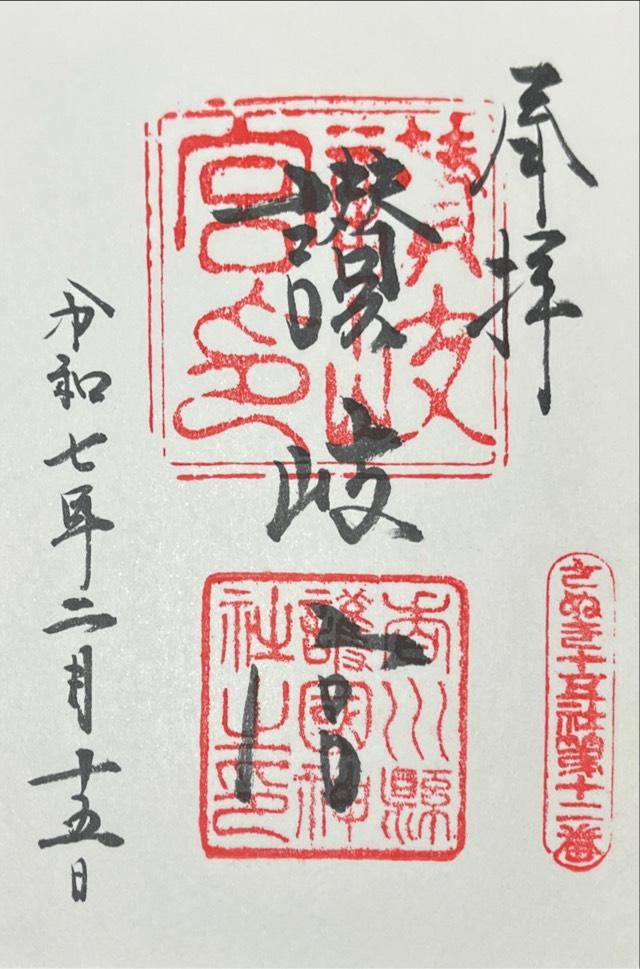 奉拝
讃岐宮
讃岐
宮印
香川縣
護國神
社之印
さぬき十五社第十二番
令和七年二月十五日